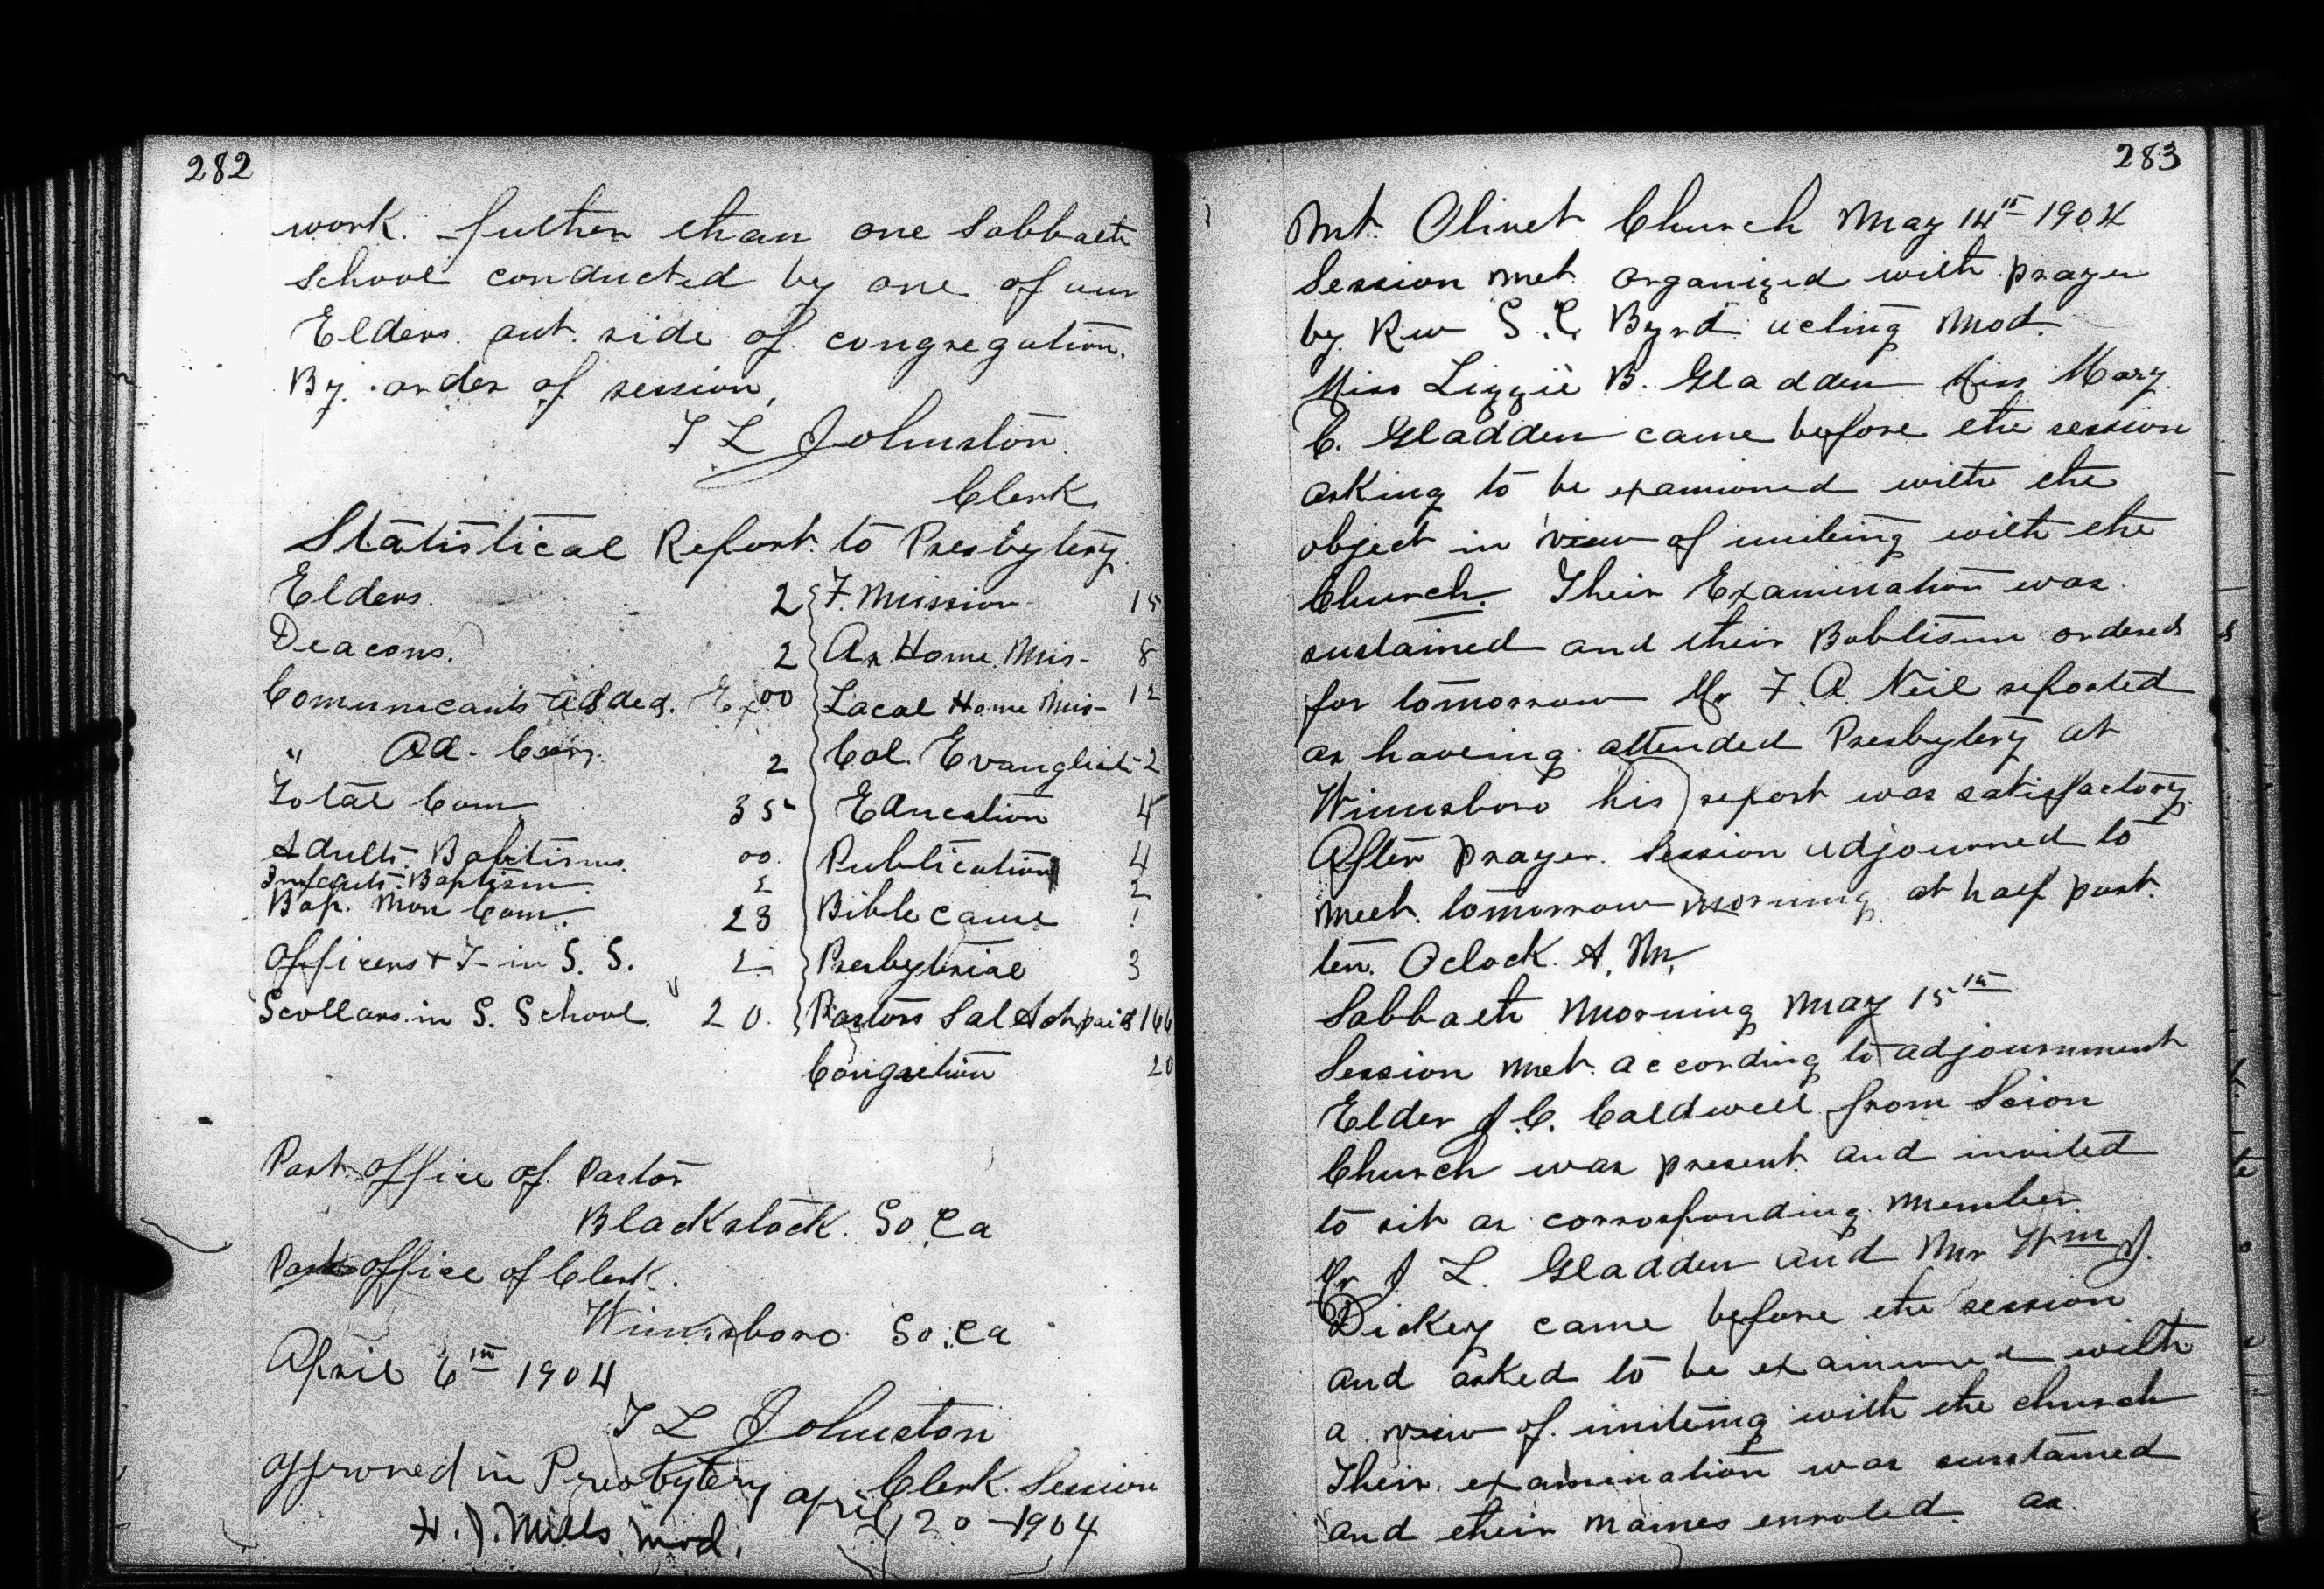 282
work. futher than one Sabbath
School conducted by one of our
Elders. out. side of congregation.
By. order of session,
T L Johnston
Clerk
Statistical Report. to Presbytery.
Elders. 2 F. Mission 15
Deacons. 2 As. Home. Mis- 8
Comunicants added. Ex 00 Local Home Mis- 12
" Ad. Cer. 2 Col. Evanglist- 2
Total Com 35 Education 4
Adults. Babtisms. 00. Publication 4
Infants. Baptism. 2 2
Bap. Non Com. 23 Bible cause 1
Officers + T- in S. S. Presbyterial 3
Scollars. in S. School. 20. Pastors Sal Ach paid 166
Congretion 20
Post office of. Pastor
Blackstock. So. Ca
Post office of Clerk.
Winnsboro. So. Ca
April 6th 1904
T L Johnston
Clerk. Session
approved in Presbytery april, 20-1904
H. J. Mills. Mod.
283
Mt. Olivet Church May 14th 1904
Session met. organized with prayer
by Rev S. C. Byrd acting Mod.
Miss Lizzie B. Gladden Miss Mary
C. Gladden came before the session
asking to be examioned with the
object in view of uniting with the
Church. Their Examination was
sustained and their Babtism ordered
for tomorrow Mr F. A. Neil reported
as haveing. attended Presbytery at
Winnsboro his report was satisfactory.
After prayer. Session adjourned to
meet. tomorrow morning. at half past.
ten. Oclock. A. M,
Sabbath Morning May 15th
Session met. according to adjournment
Elder J. C. Caldwell from Scion
Church was present and invited
to sit as corrosponding. Member.
Mr J L. Gladden and Mr Wm J.
Dickey came before the session
and asked to be examined with
a. view of. uniteing with the church
Their. examination was sustained
and their names enroled. as.